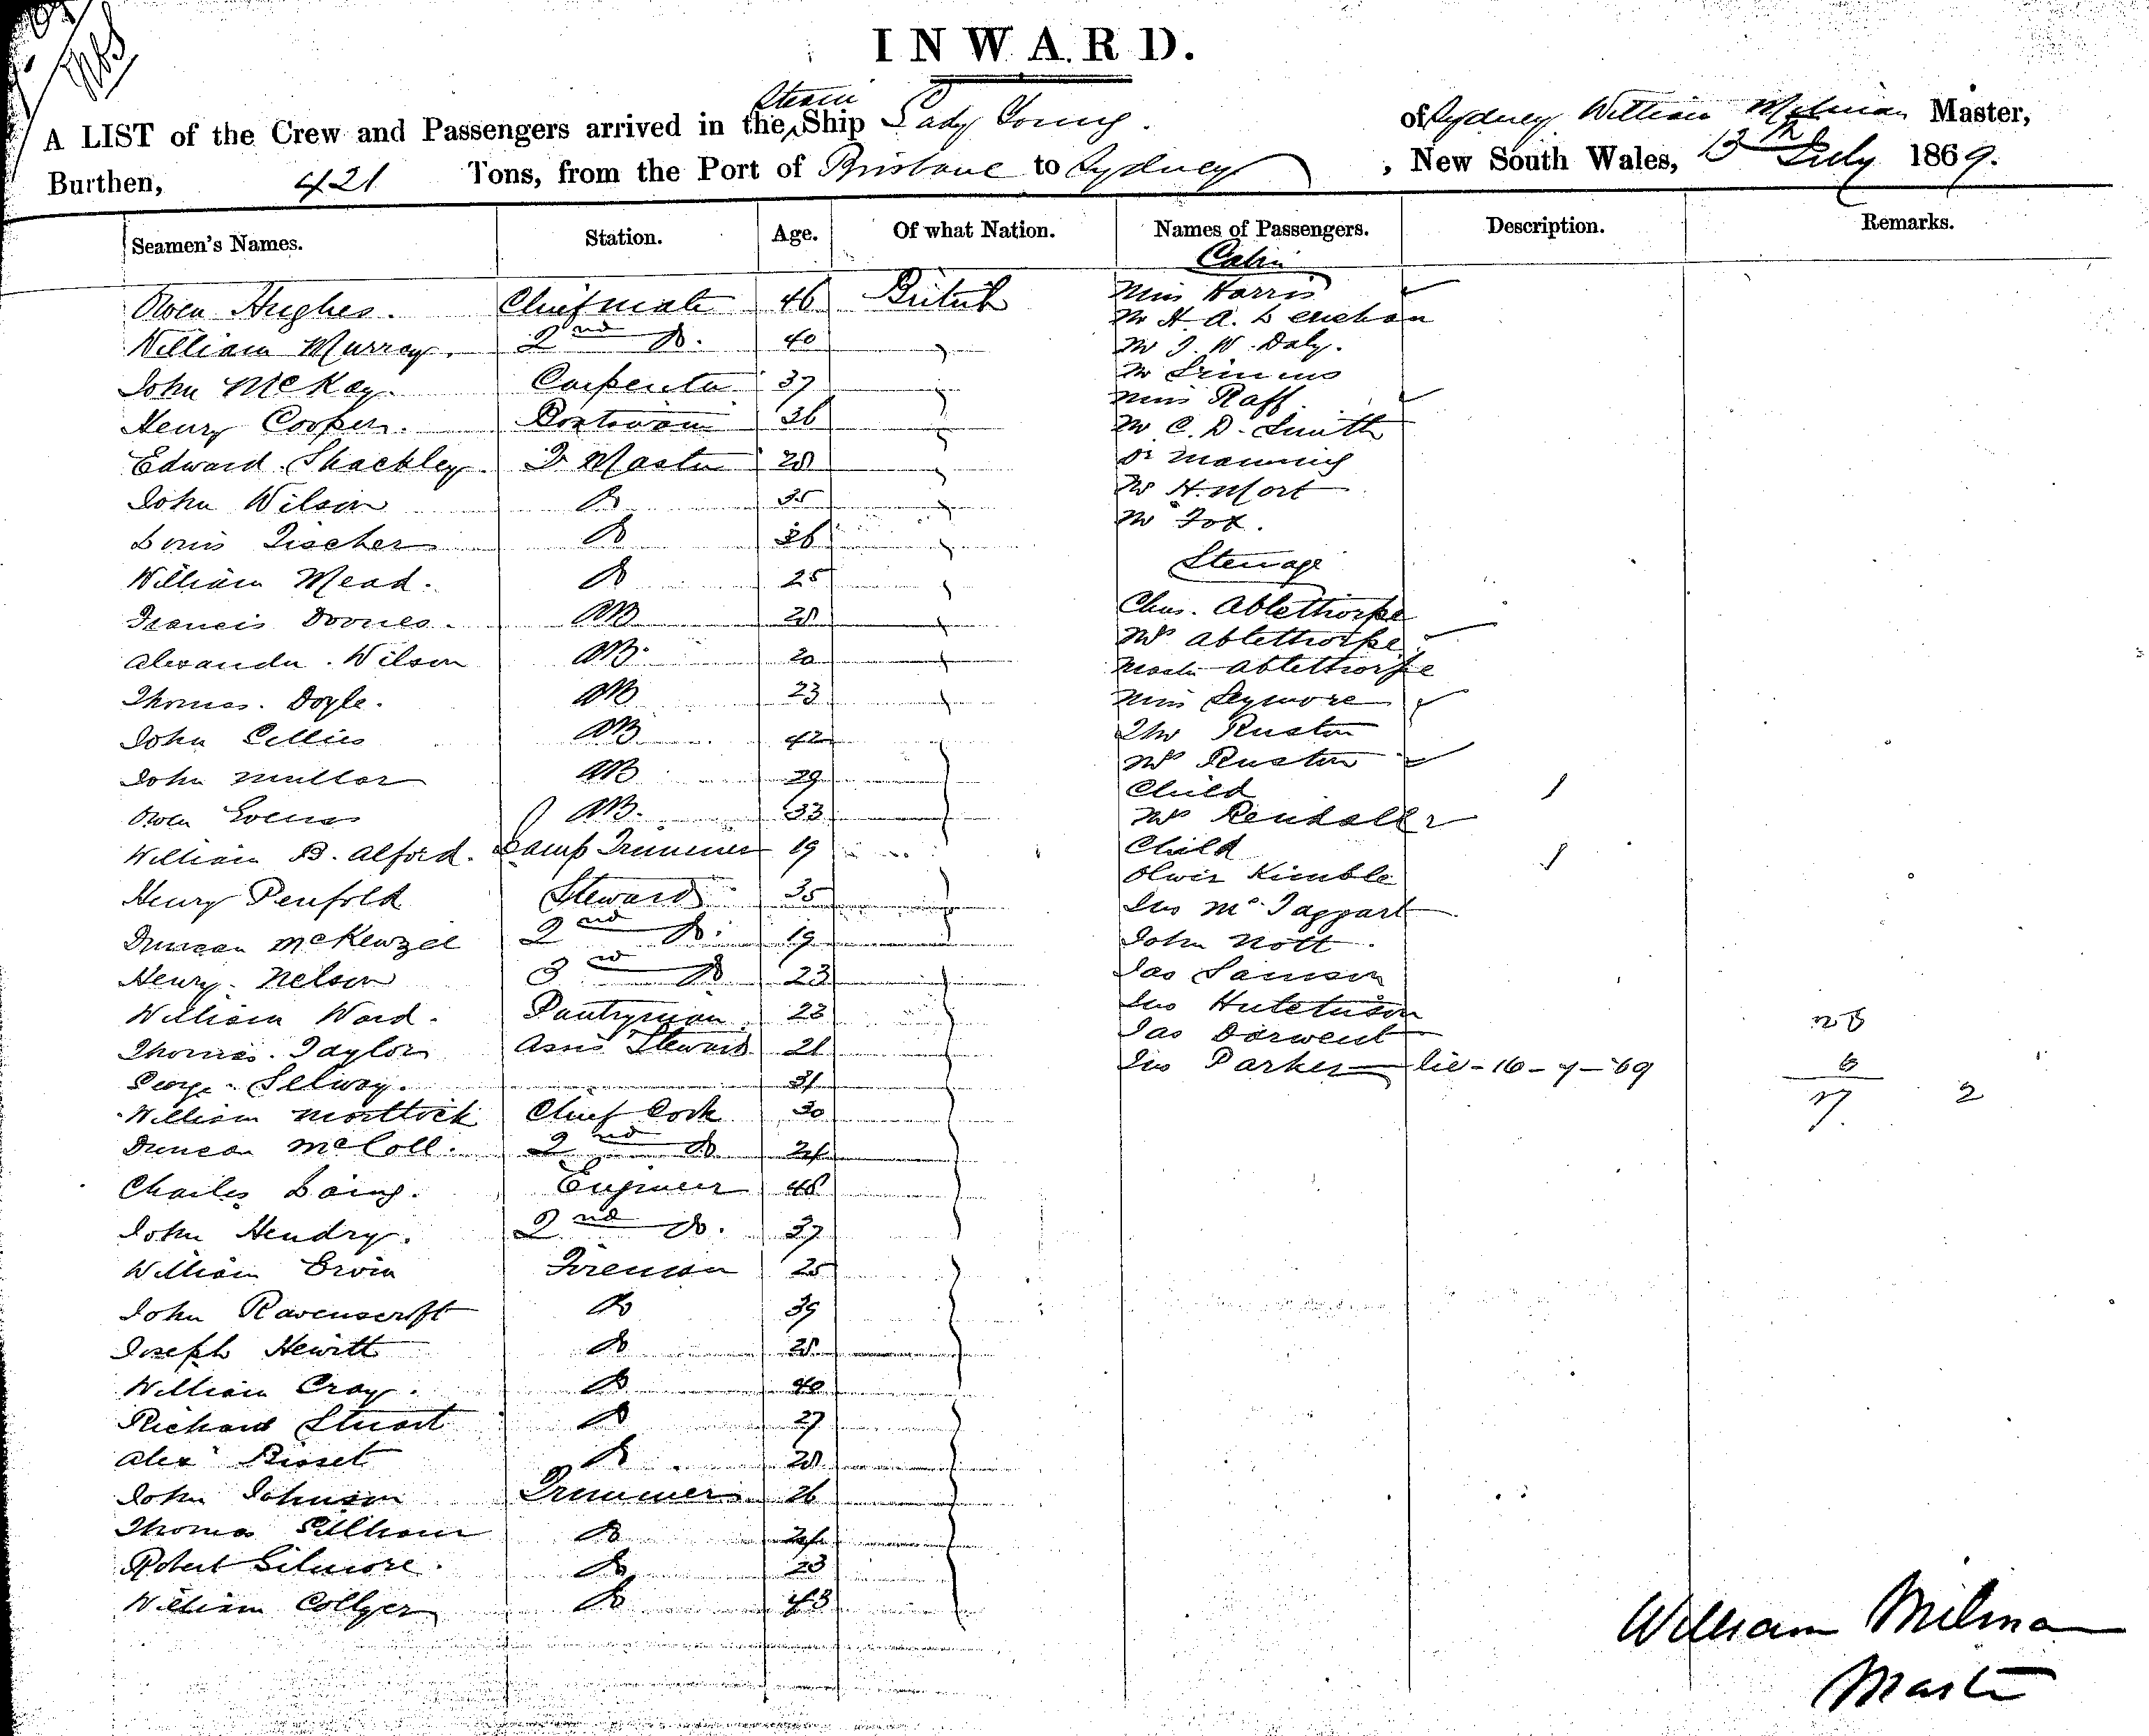 INWARD.
A LIST of the Crew and Passengers arrived in the Steam Ship Lady Young. of Sydney William Milman Master,
Burthen, 421 Tons, from the Port of Brisbane to Sydney, New South Wales, 13th July 1869.
Seamen's Names. Station. Age. Of what Nation. Names of Passengers. Description. Remarks.
Cabin
Owen Hughes. Chief mate 46 British Miss Harris
Mr H. A. Lenehan
William Murray. 2nd Do. 40 Mr J. W. Daly.
John McKay. Carpenter 37 Mr Simms
Miss Raff
Henry Cooper. Boatswain 36 Mr C. D. Smith
Edward Shackley Q Master 28 Dr Manning
John Wilson Do 35 Mr H. Mort
Mr Fox.
Louis Fischer Do 36
Steerage
William Mead. Do 25
Francis Downes. AB 28 Chas. Ablethorpe
Mrs Ablethorpe
Alexander Wilson AB. 20 Master Ablethorpe
Thomas Doyle. AB 23 Miss Seymore
John Collins AB 42 Mr Ruston
Mrs Ruston
John Mullor AB 29 Child 1
Owen Evens AB. 33 Mrs Kendall
William B. Alford. Lamp Trimmer 19 Child 1
Oliver Kimble
Henry Penfold Steward 35 Jno McTaggart
Duncan McKenzee 2nd Do. 19 John Nott
Henry Nelson 3rd Do 23 Jas Samson
William Ward. Pantryman 23 Jno Hutchison
Jas Dorwent
Thomas Taylor Assis Steward 21 Jno Parker lic-16-7-69
George Selway. 31
William Mortlock Chief Cook 30 2
Duncan McColl. 2nd Do 24
Charles Laing. Engineer 48
John Hendry. 2nd Do. 37
William Ervin Fireman 25
John Ravenscroft Do 39
Joseph Hewitt Do 28
William Cray. Do 40
Richard Stuart Do 27
Alexr Bisset Do 28
John Johnson Trimmer 26
Thomas Do 24
Robert Gilmore. Do 23
William Collyer Do 43
William Milman
Master